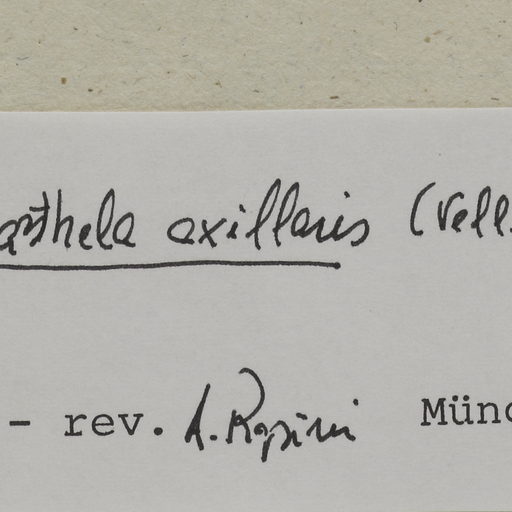 asthela axillaris (Vell.
- rev. A. Rapini Münc